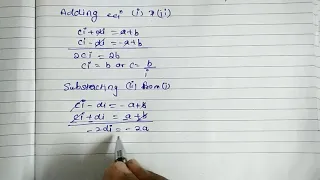 Adding (i) & (ii)
ci + di = a + b
ci - di = -a + b
2ci = 2b
ci = b or c = b/i
Substracting (i) from (i)
ci - di = -a + b
ci + di = a + b
-2di = -2a